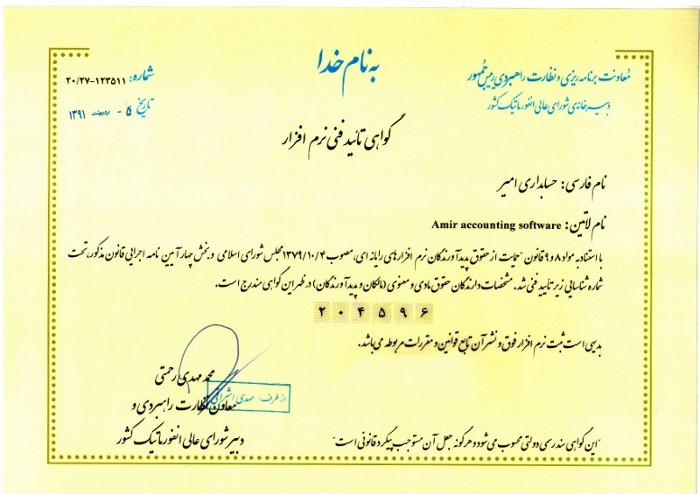 به نام خدا
معاونت برنامه ریزی و نظارت راهبردی رییس جمهور
دبیرخانه شورای عالی انفورماتیک کشور
شماره: ۲۰/۲۷-۱۲۳۵۱۱
تاریخ ۵ - اردیبهشت ۱۳۹۱
گواهی تائید فنی نرم افزار
نام فارسی: حسابداری امیر
نام لاتین: Amir accounting software
با استناد به مواد ۸ و ۹ قانون "حمایت از حقوق پدیدآورندگان نرم افزارهای رایانه ای، مصوب ۱۳۷۹/۱۰/۴ مجلس شورای اسلامی و بخش چهار آیین نامه اجرایی قانون مذکور، تحت
شماره شناسایی زیر تایید فنی شد. مشخصات دارندگان حقوق مادی و معنوی (مالکان و پدیدآورندگان) در ظهر این گواهی مندرج است.
۲۰۴۵۹۶
بدیهی است ثبت نرم افزار فوق و نشر آن تابع قوانین و مقررات مربوطه می باشد.
محمد مهدی رحمتی
از طرف: مهدی
معاون نظارت راهبردی و
دبیر شورای عالی انفورماتیک کشور
"این گواهی سند رسمی دولتی محسوب می شود و هرگونه جعل آن مستوجب پیگرد قانونی است"